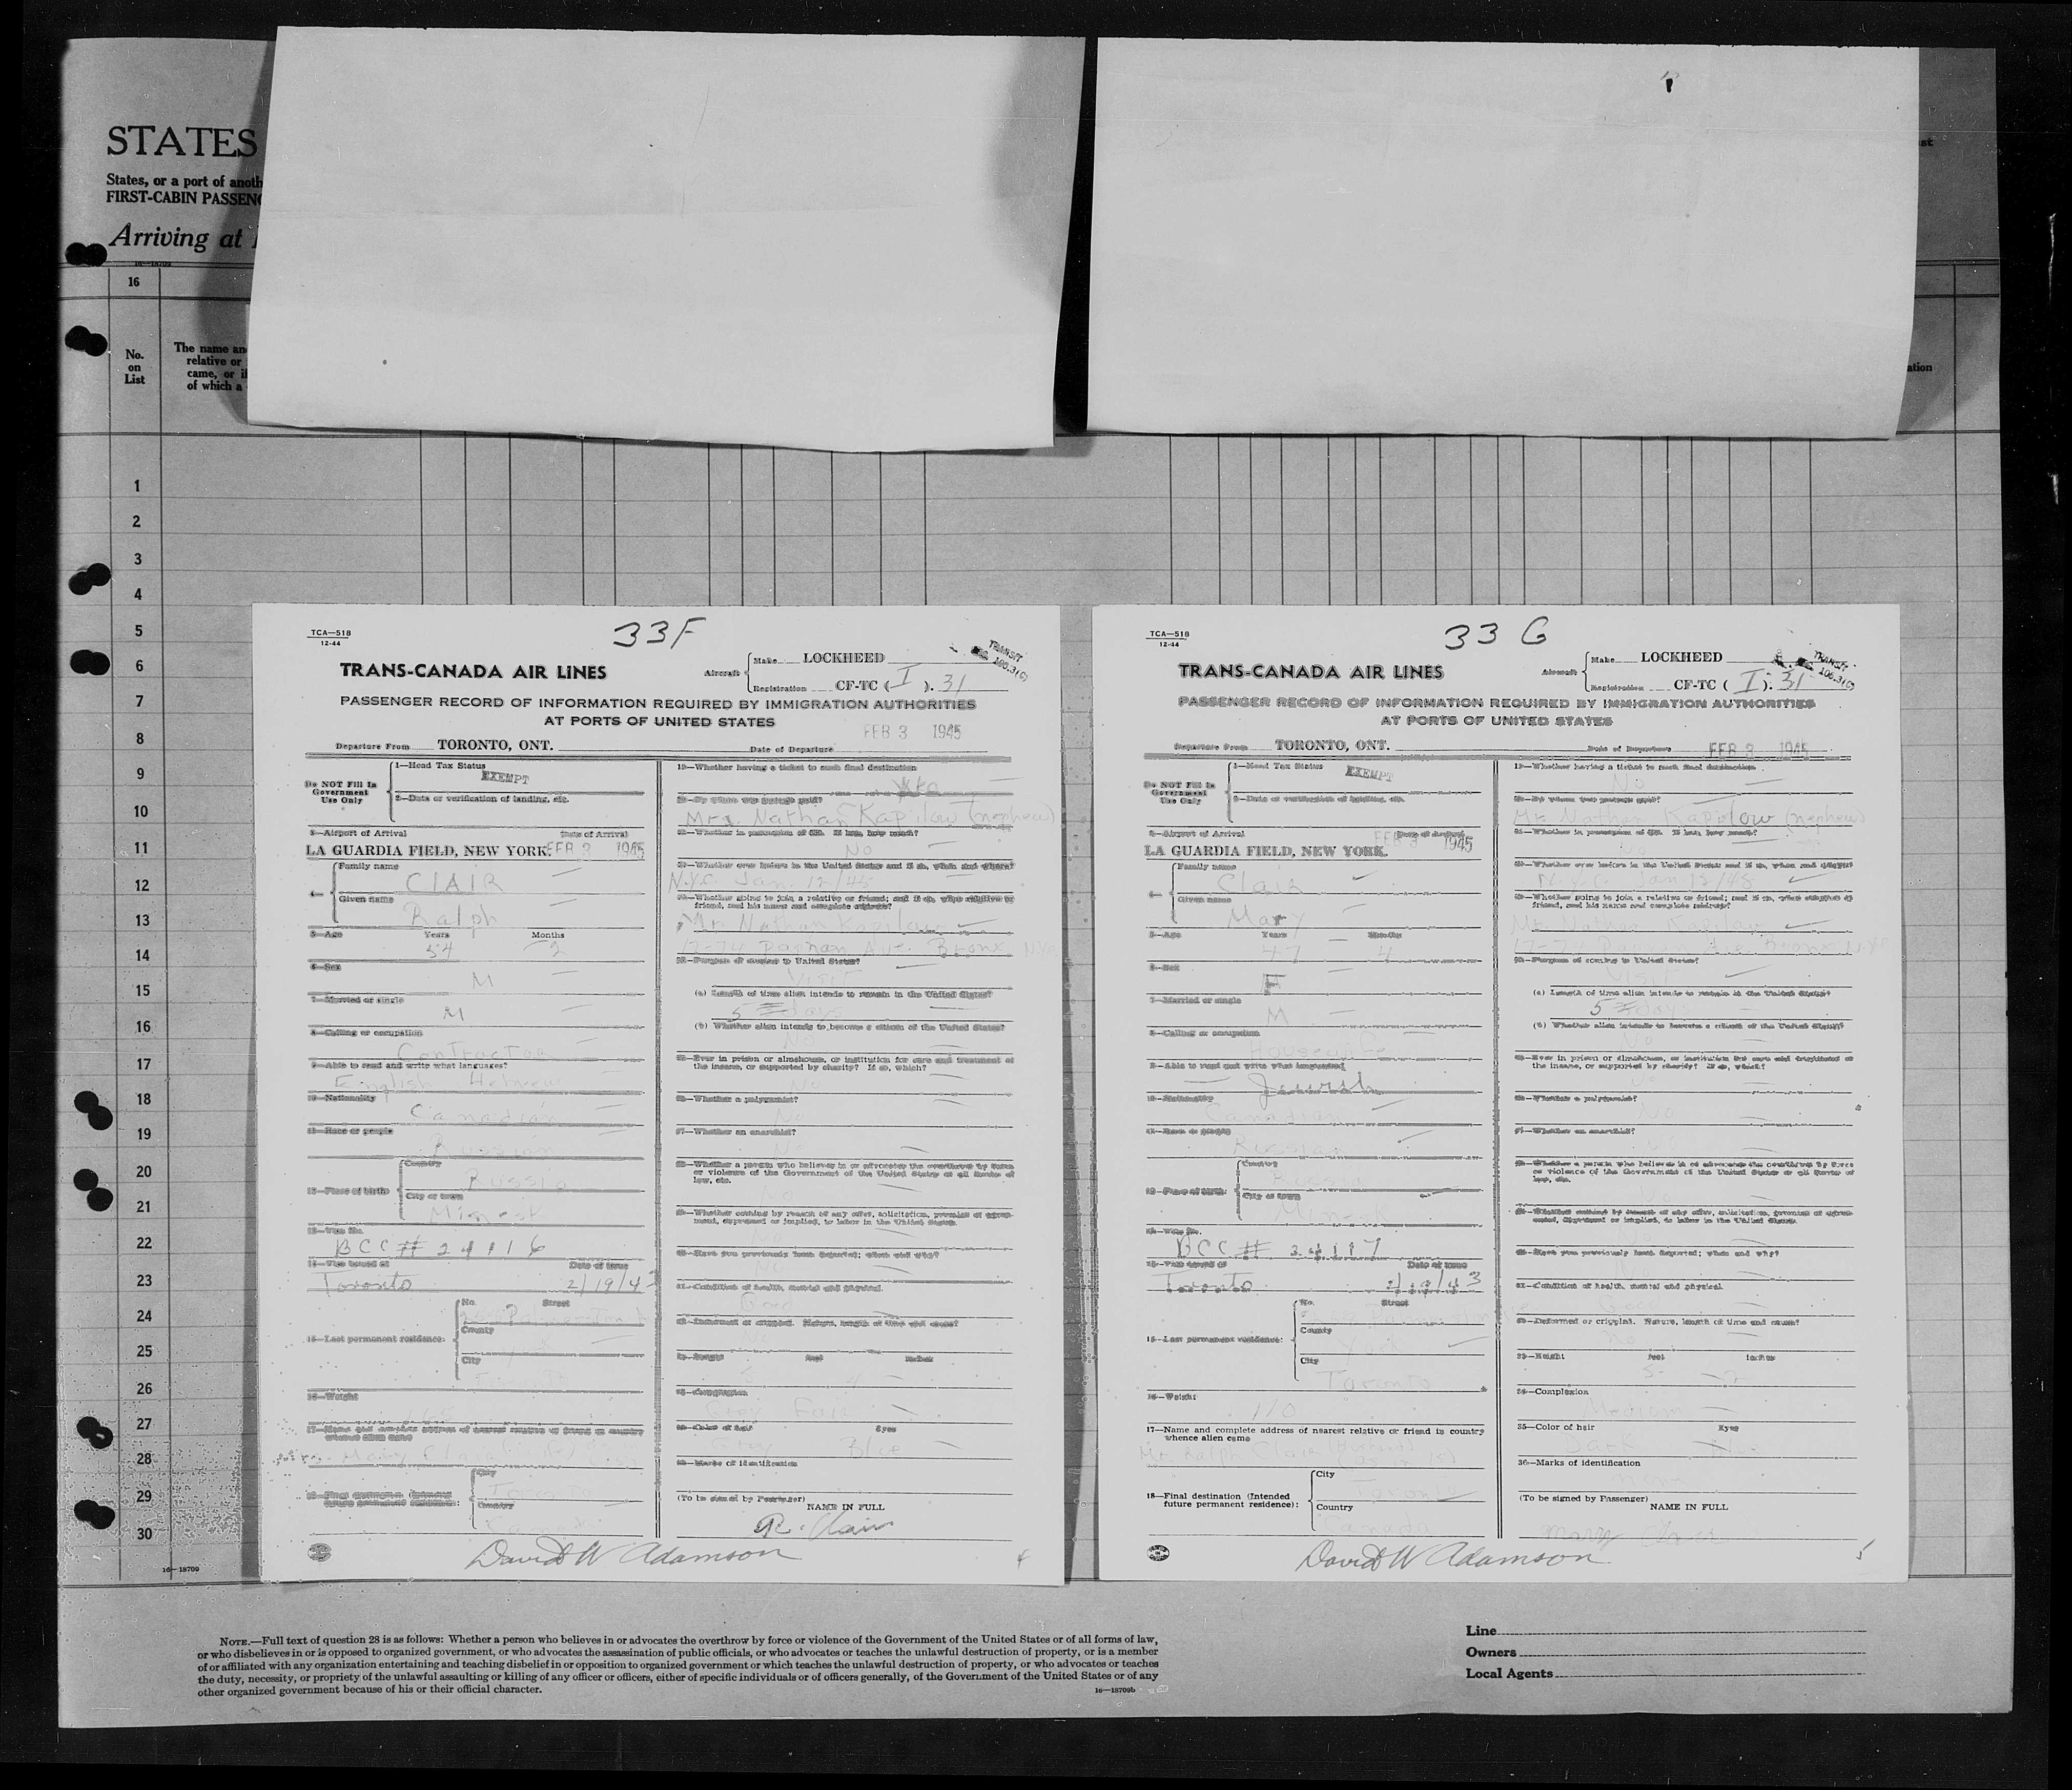 STATES
States, or a port of anoth
FIRST-CABIN PASSENG
Arriving at
16
No.
on
List
The name an
relative or
came, or if
of which a
1
2
3
4
5
6
7
8
9
10
11
12
13
14
15
16
17
18
19
20
21
22
23
24
25
26
27
28
29
30
16—18709
TCA—518
12-44
33F
TRANS-CANADA AIR LINES
Aircraft
Make LOCKHEED
Registration CF-TC ( I ). 31
TRANSIT
106.3(G)
PASSENGER RECORD OF INFORMATION REQUIRED BY IMMIGRATION AUTHORITIES
AT PORTS OF UNITED STATES
FEB 3 1945
Departure From TORONTO, ONT. Date of Departure
Do NOT Fill In
Government
Use Only
1—Head Tax Status
EXEMPT
2—Data or verification of landing, etc.
3—Airport of Arrival Date of Arrival
LA GUARDIA FIELD, NEW YORK. FEB 3 1945
4—
Family name
CLAIR
Given name
Ralph
5—Age Years Months
54 2
6—Sex
M
7—Married or single
M
8—Calling or occupation
Contractor
9—Able to read and write what languages?
English Hebrew
10—Nationality
Canadian
11—Race or people
Russian
12—Place of birth
Country
Russia
City or town
Minesk
13—Visa No.
BCC # 24116
14—Visa issued at Date of issue
Toronto 2/19/43
15—Last permanent residence:
No. Street
County
City
16—Weight
17—Name and complete address of nearest relative or friend in country
whence alien came
18—Final destination (Intended
future permanent residence):
City
Country
19—Whether having a ticket to such final destination
20—By whom was passage paid?
Mr. Nathan Kapilow (nephew)
21—Whether in possession of $50. If less, how much?
No
22—Whether ever before in the United States and if so, when and where?
N.Y.C. Jan 12/45
23—Whether going to join a relative or friend; and if so, what relative or
friend, and his name and complete address?
Mr. Nathan Kapilow
Ave. Bronx N.Y.
24—Purpose of coming to United States?
Visit
(a) Length of time alien intends to remain in the United States?
5 days
(b) Whether alien intends to become a citizen of the United States?
No
25—Ever in prison or almshouse, or institution for care and treatment of
the insane, or supported by charity? If so, which?
No
26—Whether a polygamist?
No
27—Whether an anarchist?
28—Whether a person who believes in or advocates the overthrow by force
or violence of the Government of the United States or all forms of
law, etc.
No
29—Whether coming by reason of any offer, solicitation, promise or agree-
ment, expressed or implied, to labor in the United States.
No
30—Have you previously been deported; when and why?
No
31—Condition of health, mental and physical.
Good
32—Deformed or crippled. Nature, length of time and cause?
33—Height feet inches
34—Complexion
Fair
35—Color of hair Eyes
Grey Blue
36—Marks of identification
(To be signed by Passenger)
NAME IN FULL
R. Clair
David W Adamson
4
TCA—518
12-44
33 G
TRANS-CANADA AIR LINES
Aircraft
Make LOCKHEED
Registration CF-TC ( I ). 31
TRANSIT
106.3(G)
PASSENGER RECORD OF INFORMATION REQUIRED BY IMMIGRATION AUTHORITIES
AT PORTS OF UNITED STATES
Departure From TORONTO, ONT. Date of Departure FEB 3 1945
Do NOT Fill In
Government
Use Only
1—Head Tax Status
EXEMPT
2—Data or verification of landing, etc.
3—Airport of Arrival Date of Arrival
LA GUARDIA FIELD, NEW YORK. FEB 3 1945
4—
Family name
Clair
Given name
Mary
5—Age Years Months
47 4
6—Sex
F
7—Married or single
M
8—Calling or occupation
Housewife
9—Able to read and write what languages
Jewish
10—Nationality
Canadian
11—Race or people
Russian
12—Place of birth
Country
Russia
City or town
Minesk
13—Visa No.
BCC # 24117
14—Visa issued at Date of issue
Toronto 2/19/43
15—Last permanent residence:
No. Street
County
York
City
Toronto
16—Weight
110
17—Name and complete address of nearest relative or friend in country
whence alien came
Mr. Ralph Clair (Husband)
18—Final destination (Intended
future permanent residence):
City
Toronto
Country
Canada
19—Whether having a ticket to such final destination
No
20—By whom was passage paid?
Mr. Nathan Kapilow (nephew)
21—Whether in possession of $50. If less, how much?
22—Whether ever before in the United States and if so, when and where?
N.Y.C. Jan 12/45
23—Whether going to join a relative or friend; and if so, what relative or
friend, and his name and complete address?
Mr. Nathan Kapilow
Ave. Bronx N.Y.
24—Purpose of coming to United States?
(a) Length of time alien intends to remain in the United States?
5 days
(b) Whether alien intends to become a citizen of the United States?
No
25—Ever in prison or almshouse, or institution for care and treatment of
the insane, or supported by charity? If so, which?
No
26—Whether a polygamist?
No
27—Whether an anarchist?
28—Whether a person who believes in or advocates the overthrow by force
or violence of the Government of the United States or all forms of
law, etc.
29—Whether coming by reason of any offer, solicitation, promise or agree-
ment, expressed or implied, to labor in the United States.
30—Have you previously been deported; when and why?
31—Condition of health, mental and physical
Good
32—Deformed or crippled. Nature, length of time and cause?
33—Height feet inches
5 2
34—Complexion
Medium
35—Color of hair Eyes
Dark
36—Marks of identification
(To be signed by Passenger)
NAME IN FULL
Mary Clair
David W Adamson
5
NOTE.—Full text of question 28 is as follows: Whether a person who believes in or advocates the overthrow by force or violence of the Government of the United States or of all forms of law,
or who disbelieves in or is opposed to organized government, or who advocates the assassination of public officials, or who advocates or teaches the unlawful destruction of property, or is a member
of or affiliated with any organization entertaining and teaching disbelief in or opposition to organized government or which teaches the unlawful destruction of property, or who advocates or teaches
the duty, necessity, or propriety of the unlawful assaulting or killing of any officer or officers, either of specific individuals or of officers generally, of the Government of the United States or of any
other organized government because of his or their official character.
16—18709b
Line
Owners
Local Agents